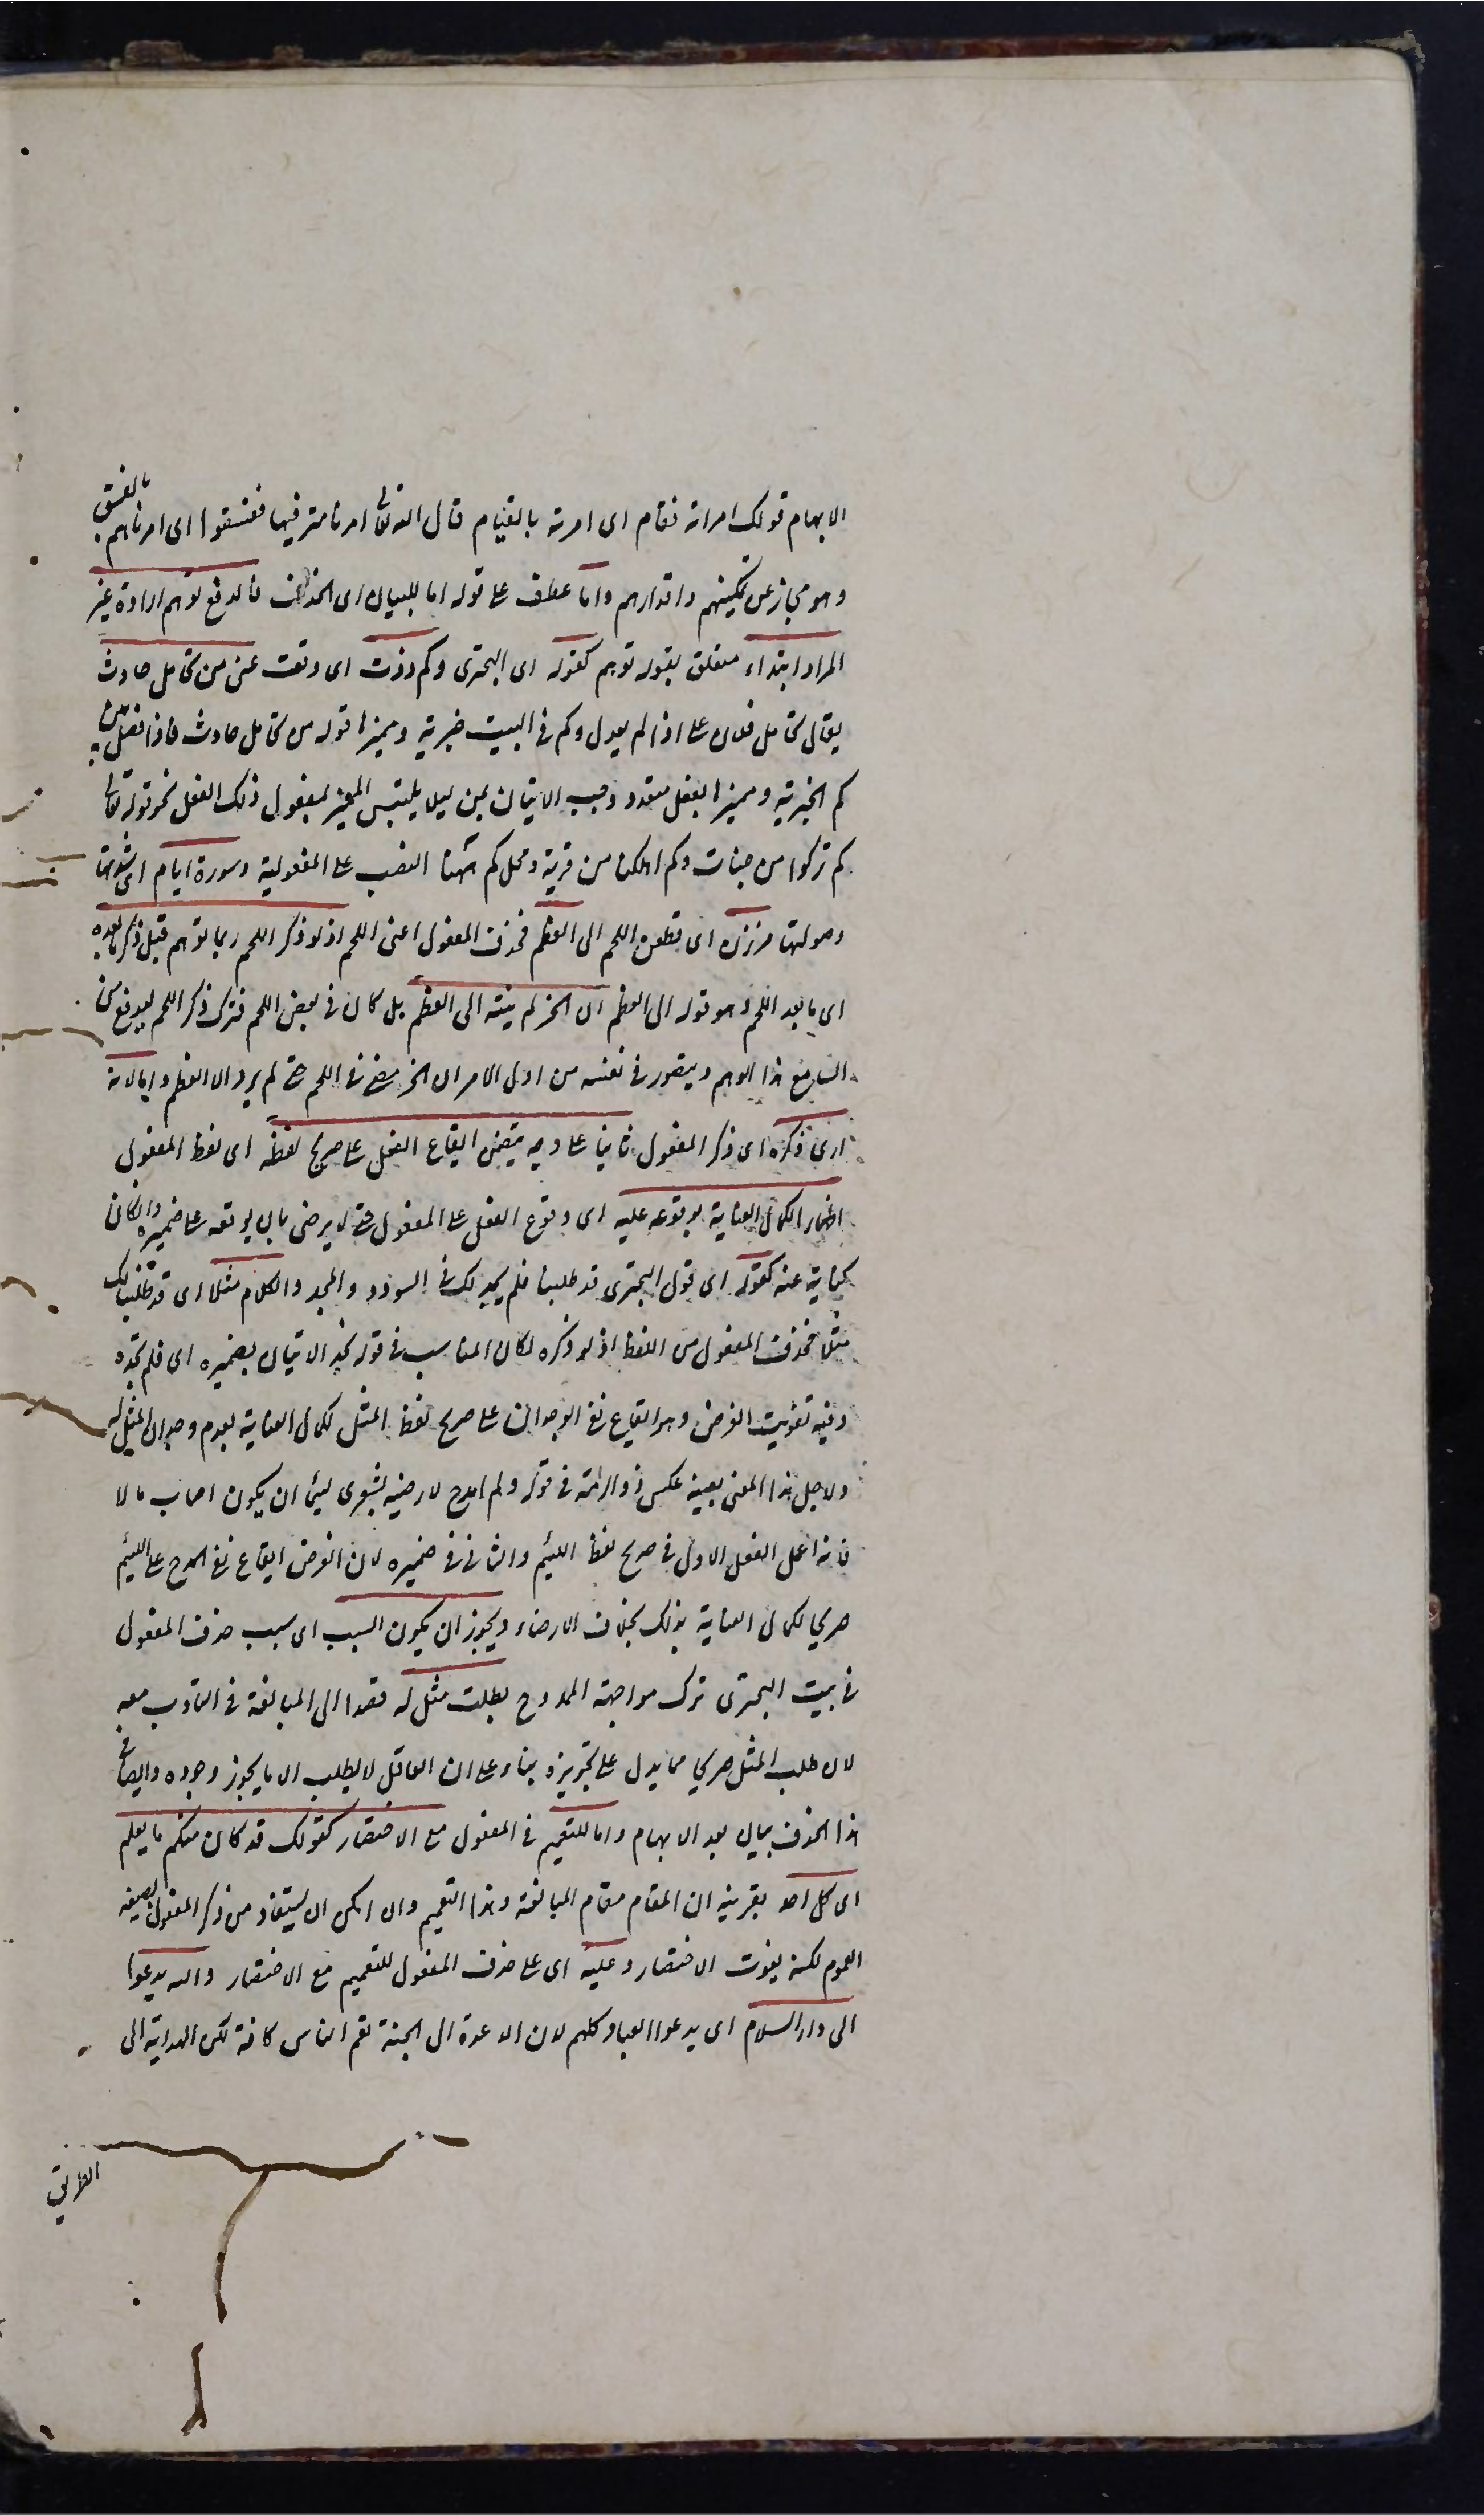 الابهام قولك امرته فقام اى امرته بالقيام قال الله تعالى امرنا مترفيها ففسقوا اى امرناهم بالفسق
وهو مجاز عن تمكينهم واقدارهم واما عطف على قوله اما للبيان اى الحذف اما لدفع توهم ارادة غير
المراد ابتداء متعلق بقوله توهم كقوله اى البحترى وكم ذدت اى دفعت عنى من تحامل حادث
يقال تحامل فلان على اذا لم يعدل وكم فى البيت خبرية ومميزها قوله من تحامل حادث فاذا فصل بين
كم الخبرية ومميزها بفعل متعدد وجب الاتيان بمن ليلا يلتبس المميز بمفعول ذلك الفعل نحو قوله تعالى
كم تركوا من جنات وكم اهلكنا من قرية ومحل كم ههنا النصب على المفعولية وسورة ايام اى شدتها
وصولتها حززن اى قطعن اللحم الى العظم فحذف المفعول اعنى اللحم اذ لو ذكر اللحم ربما توهم قبل ذكر ما بعده
اى ما بعد اللحم وهو قوله الى العظم ان الحز لم ينته الى العظم بل كان فى بعض اللحم فترك ذكر اللحم ليدفع من
السامع هذا الوهم ويتصور فى نفسه من اول الامر ان الحز مضى فى اللحم حتى لم يرد الا العظم واما لانه
اريد ذكره اى ذكر المفعول ثانيا على وجه يتضمن ايقاع الفعل على صريح لفظه اى لفظ المفعول
اظهارا لكمال العناية بوقوعه عليه اى وقوع الفعل على المفعول حتى لا يرضى بان يوقعه على ضميره وان كان
كناية عنه كقوله اى قول البحترى قد طلبنا فلم نجد لك فى السودد والمجد والمكارم مثلا اى قد طلبنا لك
مثلا فحذف المفعول من اللفظ اذ لو ذكره لكان المناسب فى قوله نجد الاتيان بضميره اى فلم نجده
وفيه تفويت الغرض وهو ايقاع نفى الوجدان على صريح لفظ المثل لكمال العناية بعدم وجدان المثل له
ولاجل هذا المعنى بعينه عكس ذو الرمة فى قوله ولم امدح لارضيه بشعرى لئيما ان يكون اصاب مالا
فانه اعمل الفعل الاول فى صريح لفظ اللئيم والثانى فى ضميره لان الغرض ايقاع نفى المدح على اللئيم
صريحا لكمال العناية بذلك بخلاف الارضاء ويجوز ان يكون السبب اى سبب حذف المفعول
فى بيت البحترى ترك مواجهة الممدوح بطلب مثل له قصدا الى المبالغة فى التادب معه
لان طلب المثل صريحا مما يدل على تجويزه بناء على ان العاقل لا يطلب الا ما يجوز وجوده وايضا فى
هذا الحذف بيان بعد الابهام واما للتعميم فى المفعول مع الاختصار كقولك قد كان منكم ما يولم
اى كل احد بقرينة ان المقام مقام المبالغة وهذا التعميم وان امكن ان يستفاد من ذكر المفعول بصيغة
العموم لكنه يفوت الاختصار وعليه اى على حذف المفعول للتعميم مع الاختصار والله يدعوا
الى دار السلام اى يدعوا العباد كلهم لان الدعوة الى الجنة تعم الناس كافة لكن الهداية الى
الطريق